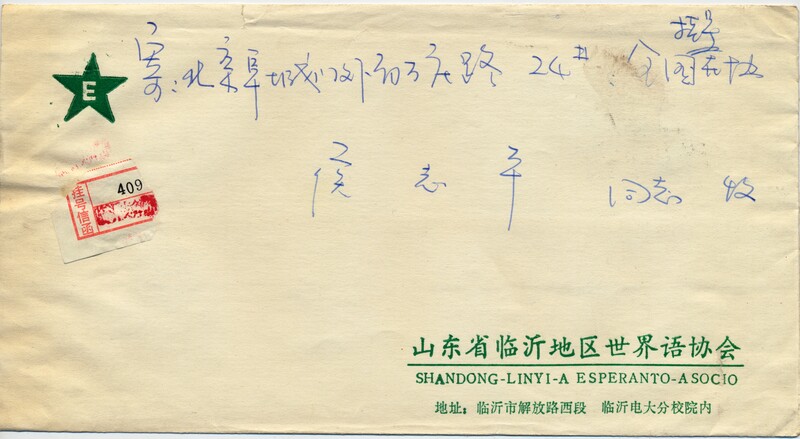 挂号
寄:北京阜城门外百万庄路24# 全国世协
E
409
挂号信函
侯志平 同志 收
山东省临沂地区世界语协会
SHANDONG-LINYI-A ESPERANTO-ASOCIO
地址:临沂市解放路西段 临沂电大分校院内